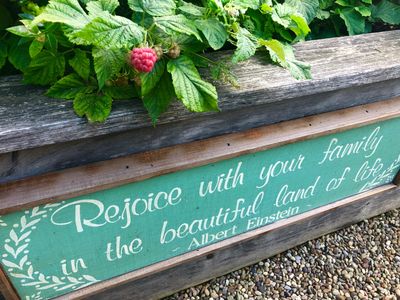 Rejoice with your family
in the beautiful land of life
- Albert Einstein -